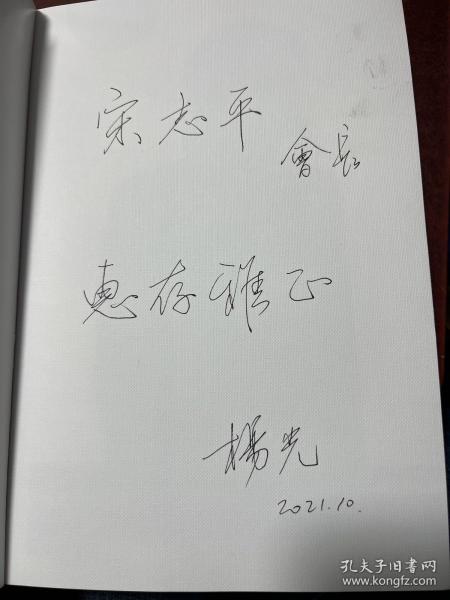 宋志平
會長
惠存雅正
楊光
2021.10.
孔夫子旧书网
www.kongfz.com